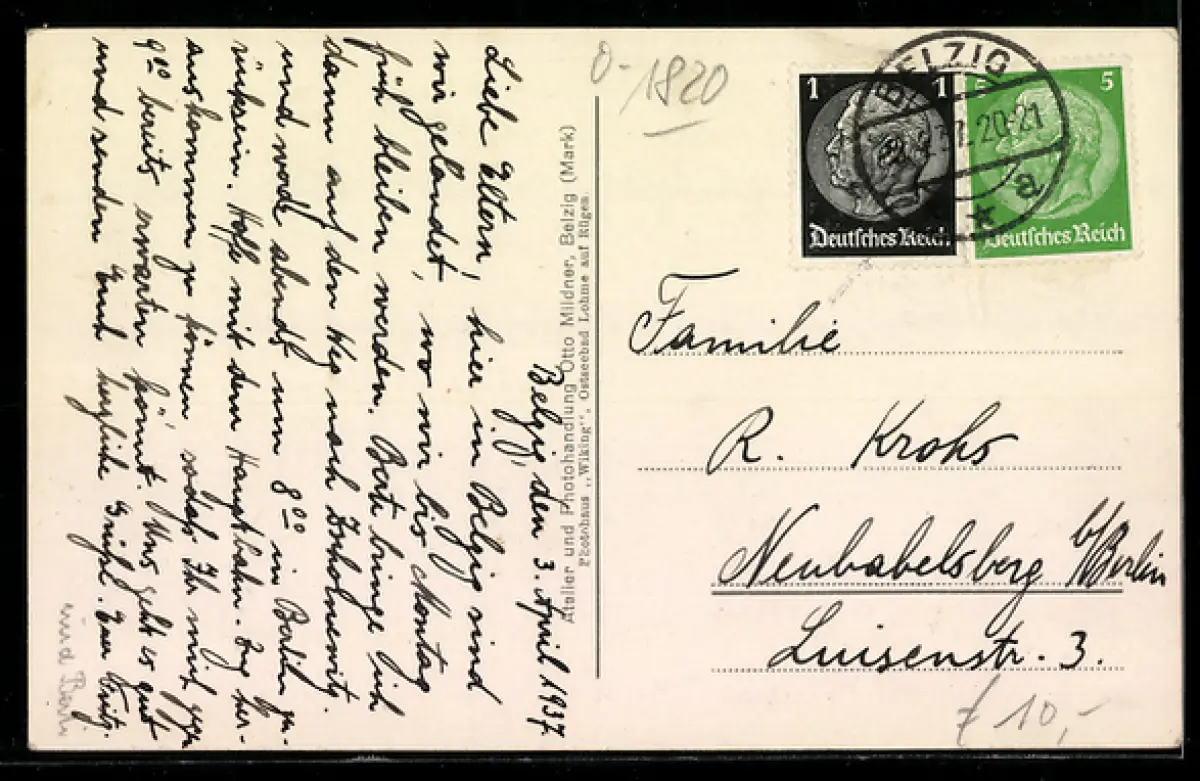 Belzig, den 3. April 1937.
Liebe Eltern, hier in Belzig sind
wir gelandet, wo wir bis Montag
früh bleiben werden. bringe ich
dann auf den Weg nach
und werde abends um 8⁰⁰ in Berlin zu-
rück sein. Hoffe mit dem Hauptbahn-Zug her-
auskommen zu können, sodaß Ihr mich gegen
9⁰⁰ bereits erwarten könnt. Uns geht es gut
und senden Euch herzliche Grüße. Euer Fritz.
und
Atelier und Photohandlung Otto Mildner, Belzig (Mark)
Photohaus „Wiking", Ostseebad Lohme auf Rügen.
0-1820
1 1
Deutsches Reich
5 5
Deutsches Reich
BELZIG
37. 20-21
a
Familie
R. Krohs
Neubabelsberg b/Berlin
Luisenstr. 3.
10,-